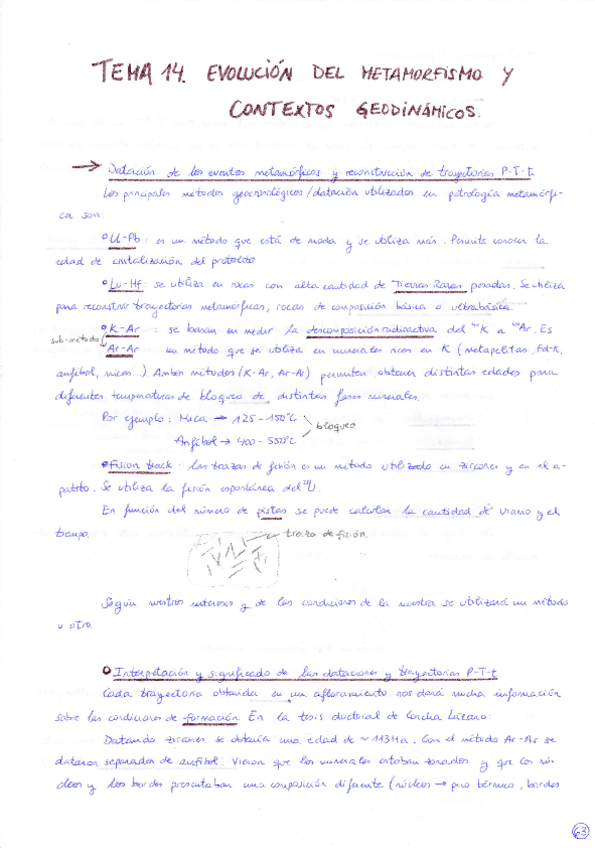 TEMA 14. EVOLUCIÓN DEL METAMORFISMO Y
CONTEXTOS GEODINÁMICOS.
→ Datación de los eventos metamórficos y reconstrucción de trayectorias P-T-t
Los principales métodos geocronológicos/datación utilizados en petrología metamórfi-
ca son:
U-Pb: es un método que está de moda y se utiliza más. Permite conocer la
edad de cristalización del protolito
Lu-Hf: se utiliza en rocas con alta cantidad de Tierras Raras pesadas. Se utiliza
para reconstruir trayectorias metamórficas, rocas de composición básica o ultrabásica.
K-Ar: se basan en medir la descomposición radiactiva del ⁴⁰K a ⁴⁰Ar. Es
sub-método
Ar-Ar un método que se utiliza en minerales ricos en K (metapelitas, Fd-K,
anfíbol, micas...) Ambos métodos (K-Ar, Ar-Ar) permiten obtener distintas edades para
diferentes temperaturas de bloqueo de distintas fases minerales.
Por ejemplo: Mica → 125-150°C
bloqueo
Anfíbol → 400-550°C
Fision track: las trazas de fisión es un método utilizado en zircones y en el a-
patito. Se utiliza la fisión espontánea del U.
En función del número de pistas se puede calcular la cantidad de Uranio y el
tiempo.
traza de fisión
Según nuestros intereses y de las condiciones de la muestra se utilizará un método
u otro.
Interpretación y significado de las dataciones y trayectorias P-T-t
Cada trayectoria obtenida en un afloramiento nos dará mucha información
sobre las condiciones de formación. En la tesis doctoral de Concha Lázaro:
Datando zircones se obtenía una edad de ~113Ma. Con el método Ar-Ar se
dataron separados de anfíbol. Vieron que los minerales estaban zonados y que los nú-
cleos y los bordes presentaban una composición diferente (núcleos → pico térmico, bordes
63